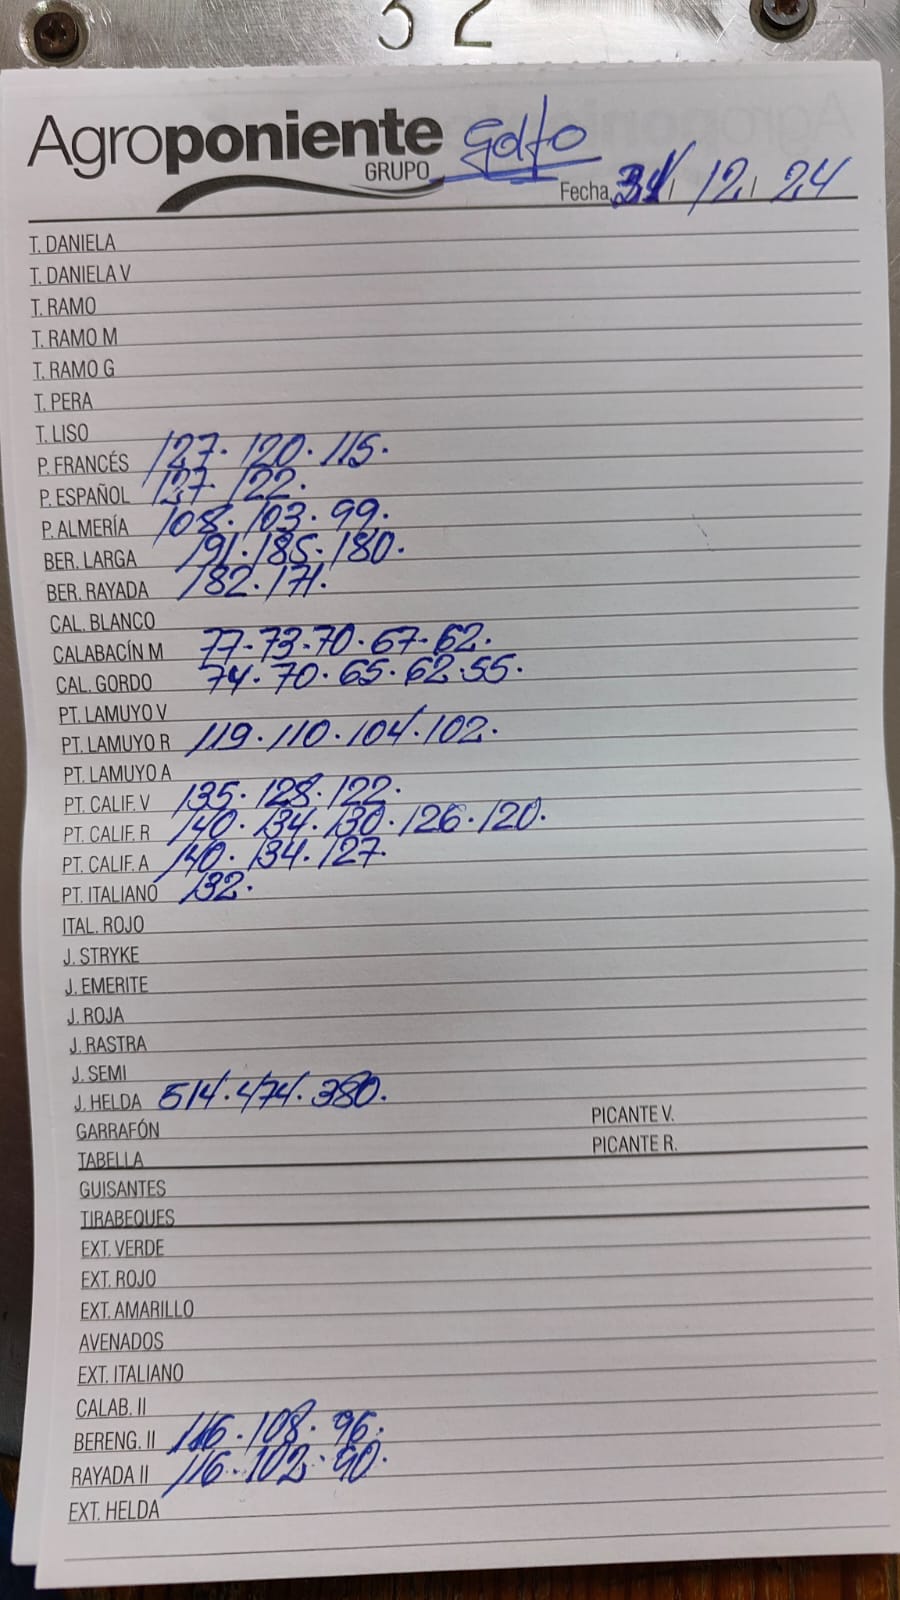 32
Agroponiente Golfo
GRUPO
Fecha 31/12/24
T. DANIELA
T. DANIELA V
T. RAMO
T. RAMO M
T. RAMO G
T. PERA
T. LISO
P. FRANCÉS 127. 120. 115.
P. ESPAÑOL 127. 122.
P. ALMERÍA 108. 103. 99.
BER. LARGA 191. 185. 180.
BER. RAYADA 182. 171.
CAL. BLANCO
CALABACÍN M 77-73-70. 67-62.
CAL. GORDO 74. 70. 65. 62. 55.
PT. LAMUYO V
PT. LAMUYO R 119. 110. 104. 102.
PT. LAMUYO A
PT. CALIF. V 135. 128. 122.
PT. CALIF. R 140. 134. 130. 126. 120.
PT. CALIF. A 140. 134. 127.
PT. ITALIANO 132.
ITAL. ROJO
J. STRYKE
J. EMERITE
J. ROJA
J. RASTRA
J. SEMI
J. HELDA 514. 474. 380.
GARRAFÓN PICANTE V.
TABELLA PICANTE R.
GUISANTES
TIRABEQUES
EXT. VERDE
EXT. ROJO
EXT. AMARILLO
AVENADOS
EXT. ITALIANO
CALAB. II
BERENG. II 116. 108. 96.
RAYADA II 116. 102. 90.
EXT. HELDA